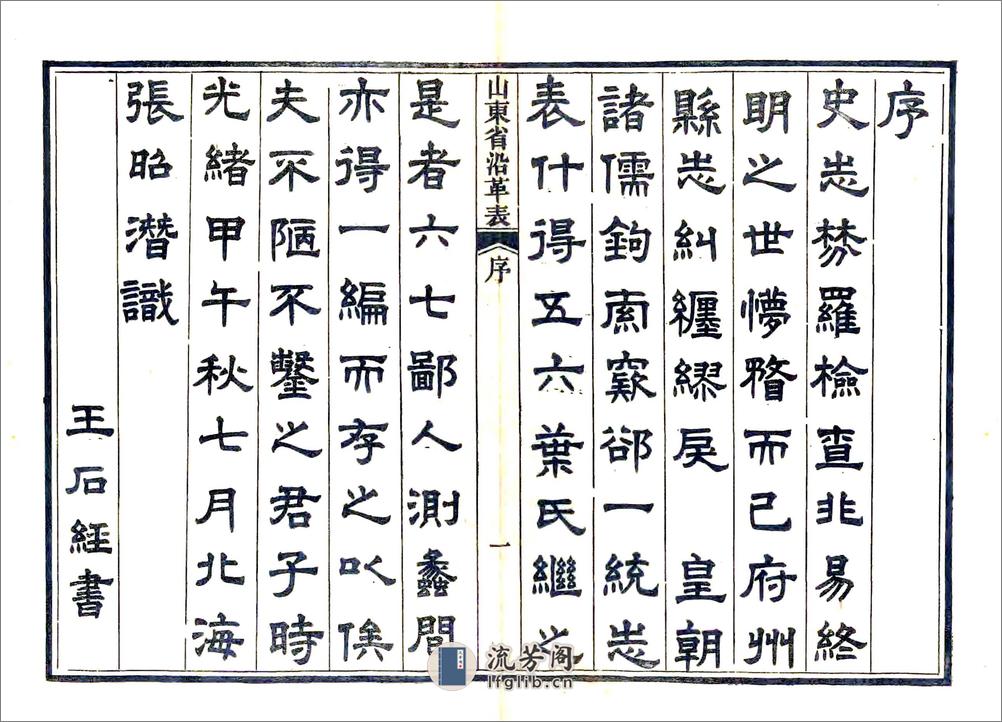 序
史志棼羅檢查非易終
明之世懜瞀而已府州
縣志糾纏繆戾 皇朝
諸儒鉤索窾郤一統志
表什得五六葉氏繼之
山東省沿革表 序 一
是者六七鄙人測蠡間
亦得一編而存之以俟
夫不陋不鑿之君子時
光緒甲午秋七月北海
張昭潛識
王石經書
流芳阁
lfglib.cn